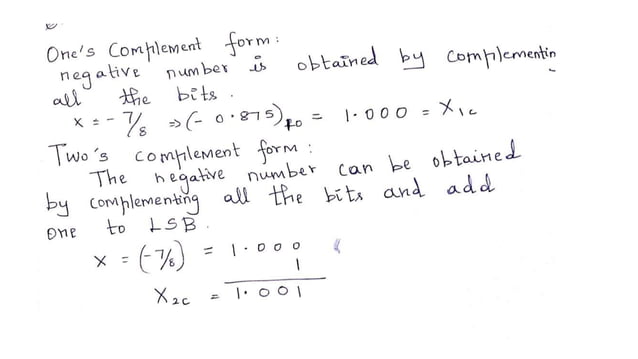 One's Complement form:
negative number is obtained by complementin
all the bits.
x = - 7/8 ⇒ (- 0.875)10 = 1.000 = X1c
Two's complement form:
The negative number can be obtained
by complementing all the bits and add
one to LSB.
x = (-7/8) = 1.000
1
X2c = 1.001